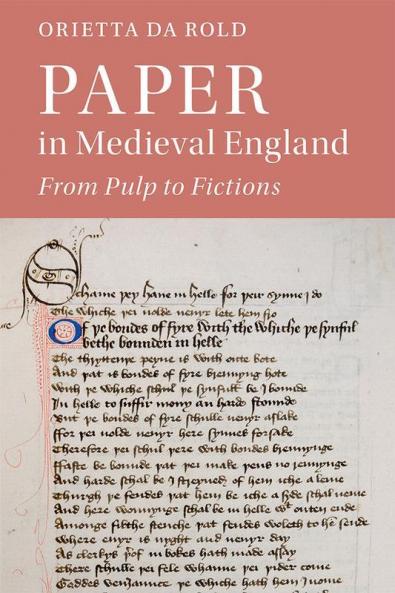 ORIETTA DA ROLD
PAPER
in Medieval England
From Pulp to Fictions
Schame þey haue in helle for þeir synne i do
The whiche þei nolde neuyr lete hem fro
Of þe bondes of fyre with the whiche þe synful
bethe bounden in helle
The thryttene peyne is with oute bote
And þat is bondes of fyre brennyng hote
With þe whiche schul þe synfull be I bounde
In helle to suffir mony an hard stounde
But þe bondes of fyre schulle neuyr aslake
ffor þei nolde neuyr here synnes forsake
Therefore þei schul þere with bondes brennynge
ffaste be bounde þat þei make
And harde schal be I streyned of hem iche a leme
Thurgh þe fendes þat hem be iche a syde schal
And here wonnynge schal be in helle wt outen ende
Amonge filthe stenche þat fendes woleth to hem sende
Where euyr is nyght and neuyr day
As clerkys in bokes hath made assay
There schulle þei fele whanne þei þider come
Goddes venjaunce þe whiche hath hem I nome